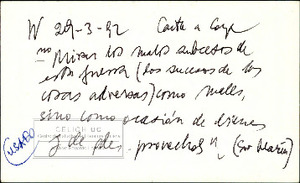 W 29-3-92 Carta a Caye
"Mirar los malos sucesos de
esta guerra (los sucesos de las
cosas adversas) como males,
sino como ocasión de bienes
y de des- provechos" (Sor María)
CELICH UC
USADO